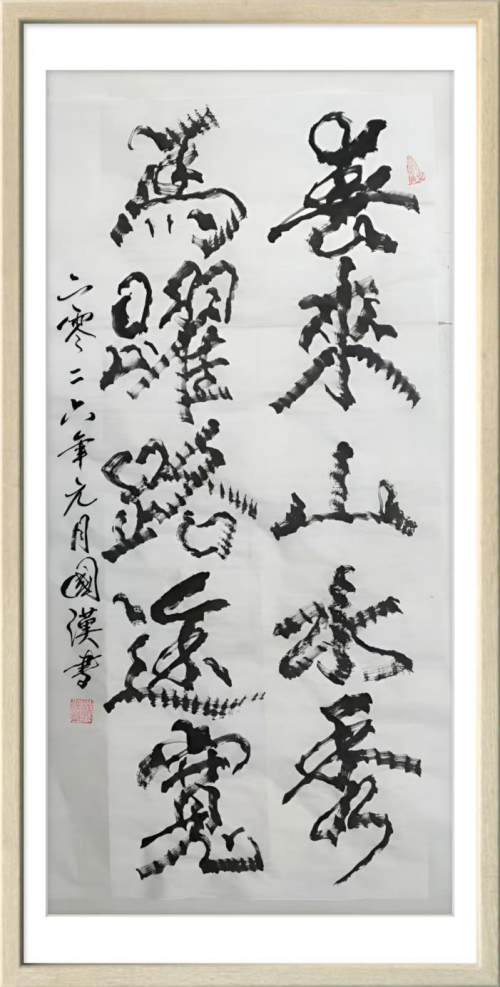 春來山水秀
馬躍路途寬
二零二六年元月國漢書